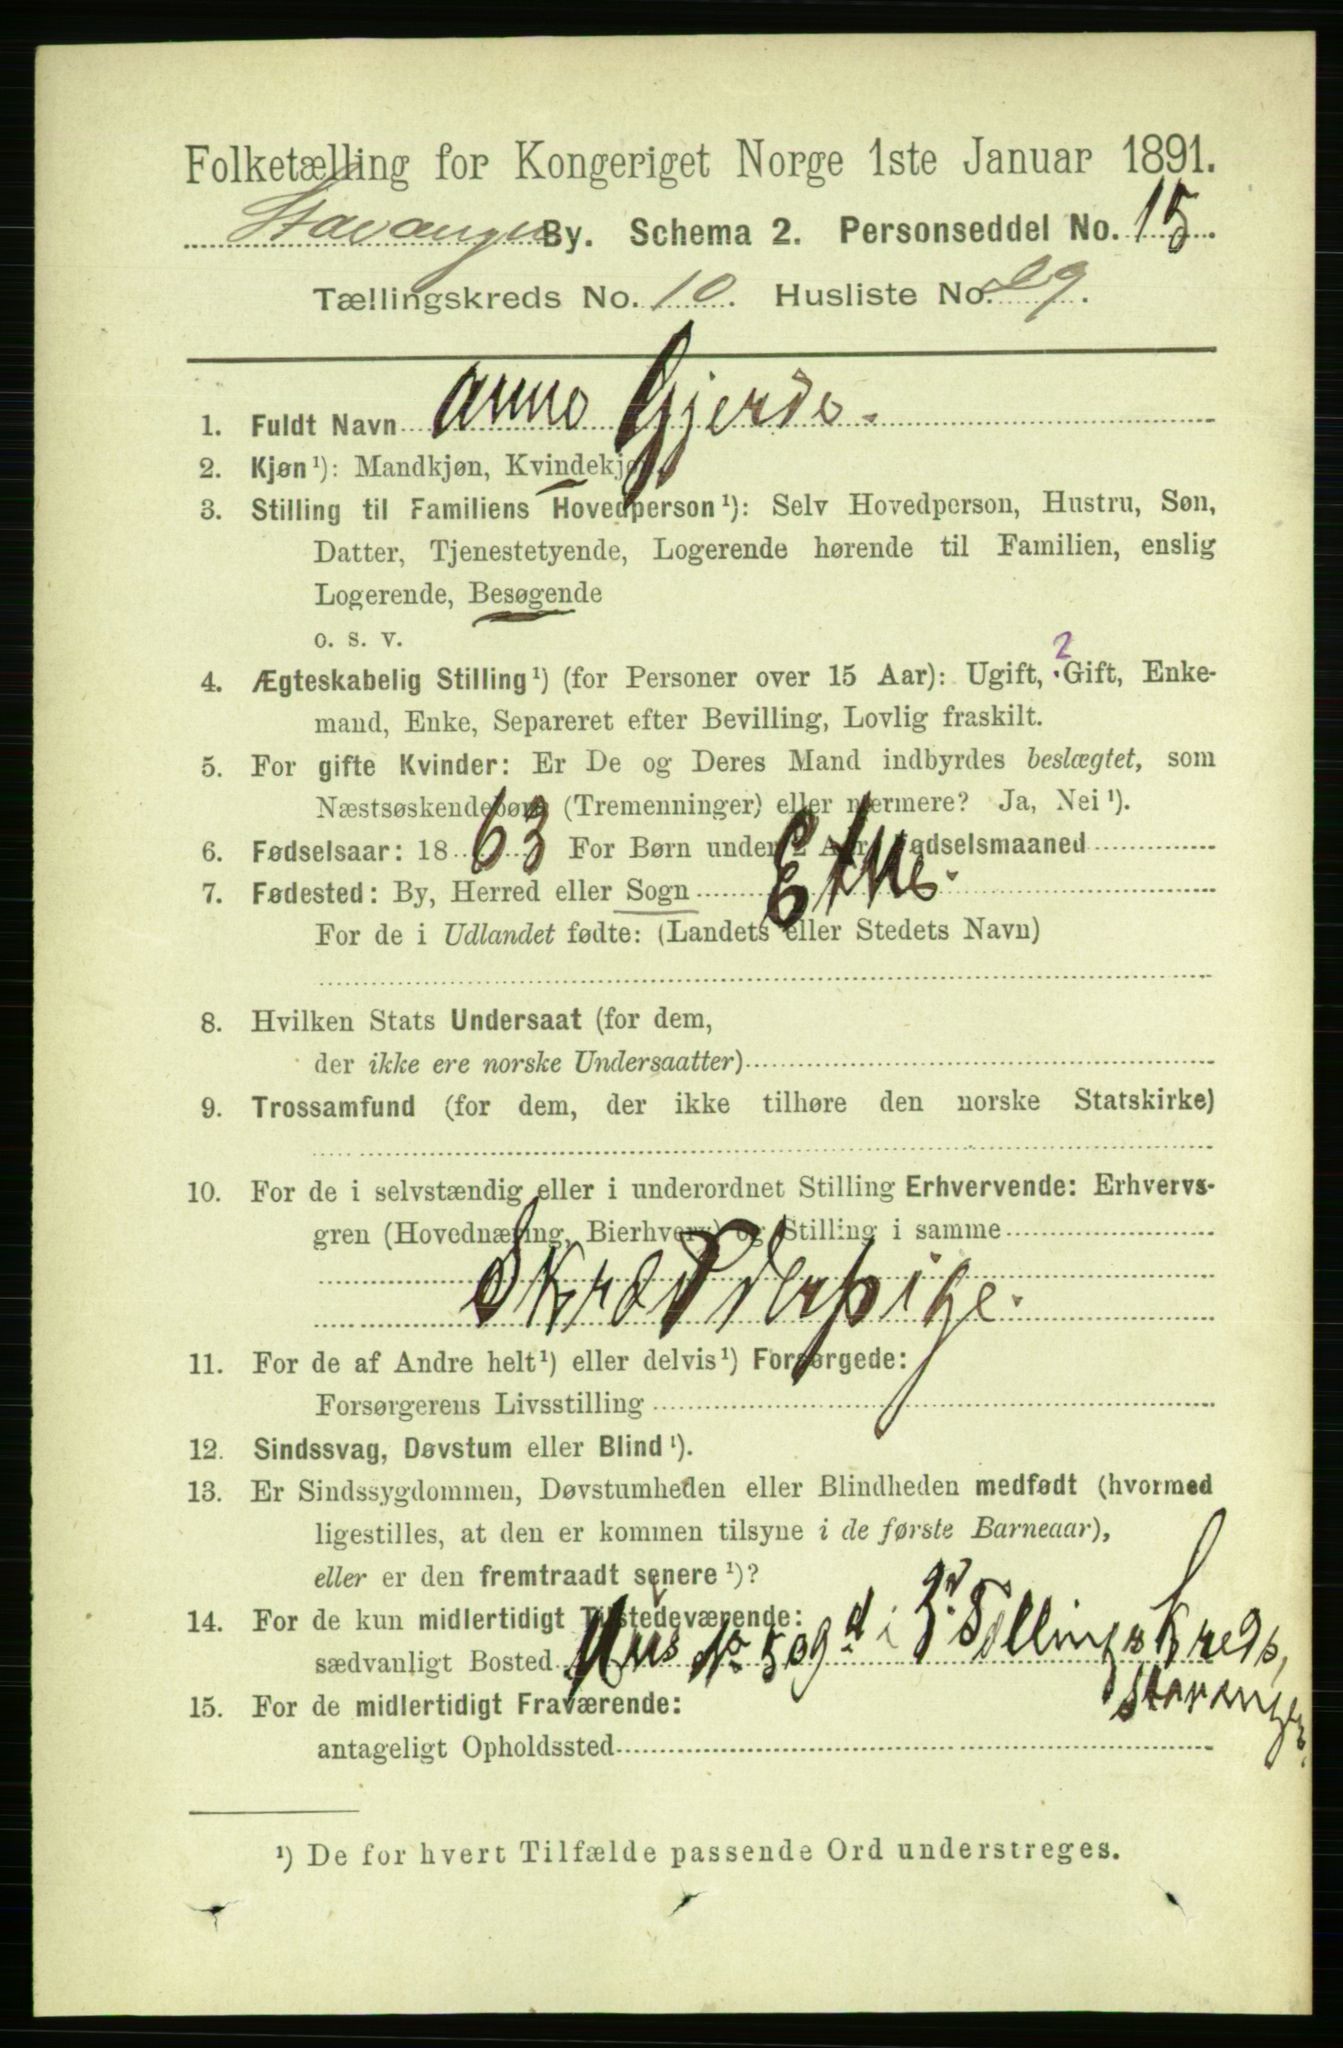 Folketælling for Kongeriget Norge 1ste Januar 1891.
Stavanger By. Schema 2. Personseddel No. 15.
Tællingskreds No. 10. Husliste No. 29.
1. Fuldt Navn Anna Gjerde.
2. Kjøn ¹): Mandkjøn, Kvindekjøn.
3. Stilling til Familiens Hovedperson ¹): Selv Hovedperson, Hustru, Søn,
Datter, Tjenestetyende, Logerende hørende til Familien, enslig
Logerende, Besøgende
o. s. v.
2
4. Ægteskabelig Stilling ¹) (for Personer over 15 Aar): Ugift, Gift, Enke-
mand, Enke, Separeret efter Bevilling, Lovlig fraskilt.
5. For gifte Kvinder: Er De og Deres Mand indbyrdes beslægtet, som
Næstsøskendebørn (Tremenninger) eller nærmere? Ja, Nei ¹).
6. Fødselsaar: 1863 For Børn under 2 Aar: Fødselsmaaned
7. Fødested: By, Herred eller Sogn Etne.
For de i Udlandet fødte: (Landets eller Stedets Navn)
8. Hvilken Stats Undersaat (for dem,
der ikke ere norske Undersaatter)
9. Trossamfund (for dem, der ikke tilhøre den norske Statskirke)
10. For de i selvstændig eller i underordnet Stilling Erhvervende: Erhvervs-
gren (Hovednæring, Bierhverv) og Stilling i samme
Skrædderpige.
11. For de af Andre helt ¹) eller delvis ¹) Forsørgede:
Forsørgerens Livsstilling
12. Sindssvag, Døvstum eller Blind ¹).
13. Er Sindssygdommen, Døvstumheden eller Blindheden medfødt (hvormed
ligestilles, at den er kommen tilsyne i de første Barneaar),
eller er den fremtraadt senere ¹)?
14. For de kun midlertidigt Tilstedeværende:
sædvanligt Bosted Hus No 509 d i Tellingskreds,
Stavanger.
15. For de midlertidigt Fraværende:
antageligt Opholdssted
¹) De for hvert Tilfælde passende Ord understreges.